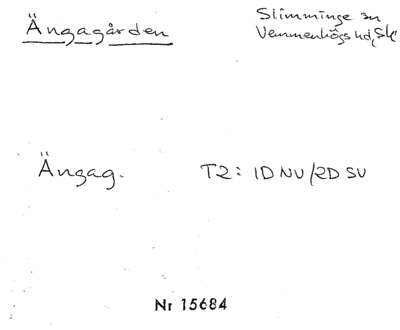 Ängagården
Slimminge sn
Vemmenhögs hd, Sk
Ängag.
T2: 1D NV/2D SV
Nr 15684